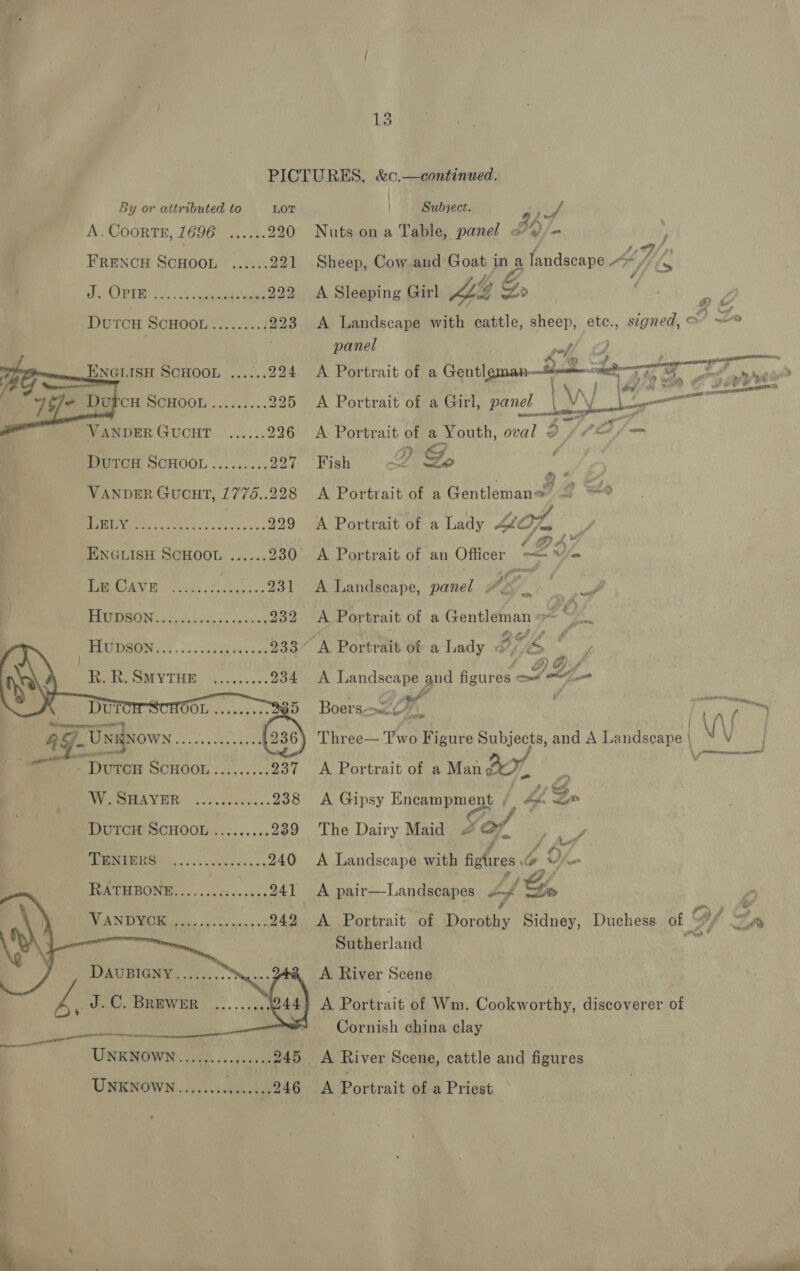 13
PICTURES, &c.—continued.
By or attributed to LOT Subject.
A. COORTE, 1696 ...... 220 Nuts on a Table, panel
FRENCH SCHOOL ...... 221 Sheep, Cow and Goat in a landscape
J. OPIE .................. 222 A Sleeping Girl
DUTCH SCHOOL ......... 223 A Landscape with cattle, sheep, etc., signed,
panel
ENGLISH SCHOOL ...... 224 A Portrait of a Gentleman
DUTCH SCHOOL ......... 225 A Portrait of a Girl, panel W
VANDER GUCHT ...... 226 A Portrait of a Youth, oval
DUTCH SCHOOL ......... 227 Fish
VANDER GUCHT, 1775..228 A Portrait of a Gentleman
LELY ..................... 229 A Portrait of a Lady
ENGLISH SCHOOL ...... 230 A Portrait of an Officer
LE CAVE ............... 231 A Landscape, panel
HUDSON .................. 232 A Portrait of a Gentleman
HUDSON .................. 233 A Portrait of a Lady
R. R. SMYTHE ......... 234 A Landscape and figures
DUTCH SCHOOL ......... 235 Boers
UNKNOWN ............... 236 Three—Two Figure Subjects, and A Landscape W
DUTCH SCHOOL ......... 237 A Portrait of a Man
W. SHAYER ............ 238 A Gipsy Encampment
DUTCH SCHOOL ......... 239 The Dairy Maid
TENIERS ............... 240 A Landscape with figures
RATHBONE ............... 241 A pair—Landscapes
VANDYCK ............... 242 A Portrait of Dorothy Sidney, Duchess of
Sutherland
DAUBIGNY ............... 243 A River Scene
J. C. BREWER ......... 244 A Portrait of Wm. Cookworthy, discoverer of
Cornish china clay
UNKNOWN ............... 245 A River Scene, cattle and figures
UNKNOWN ............... 246 A Portrait of a Priest